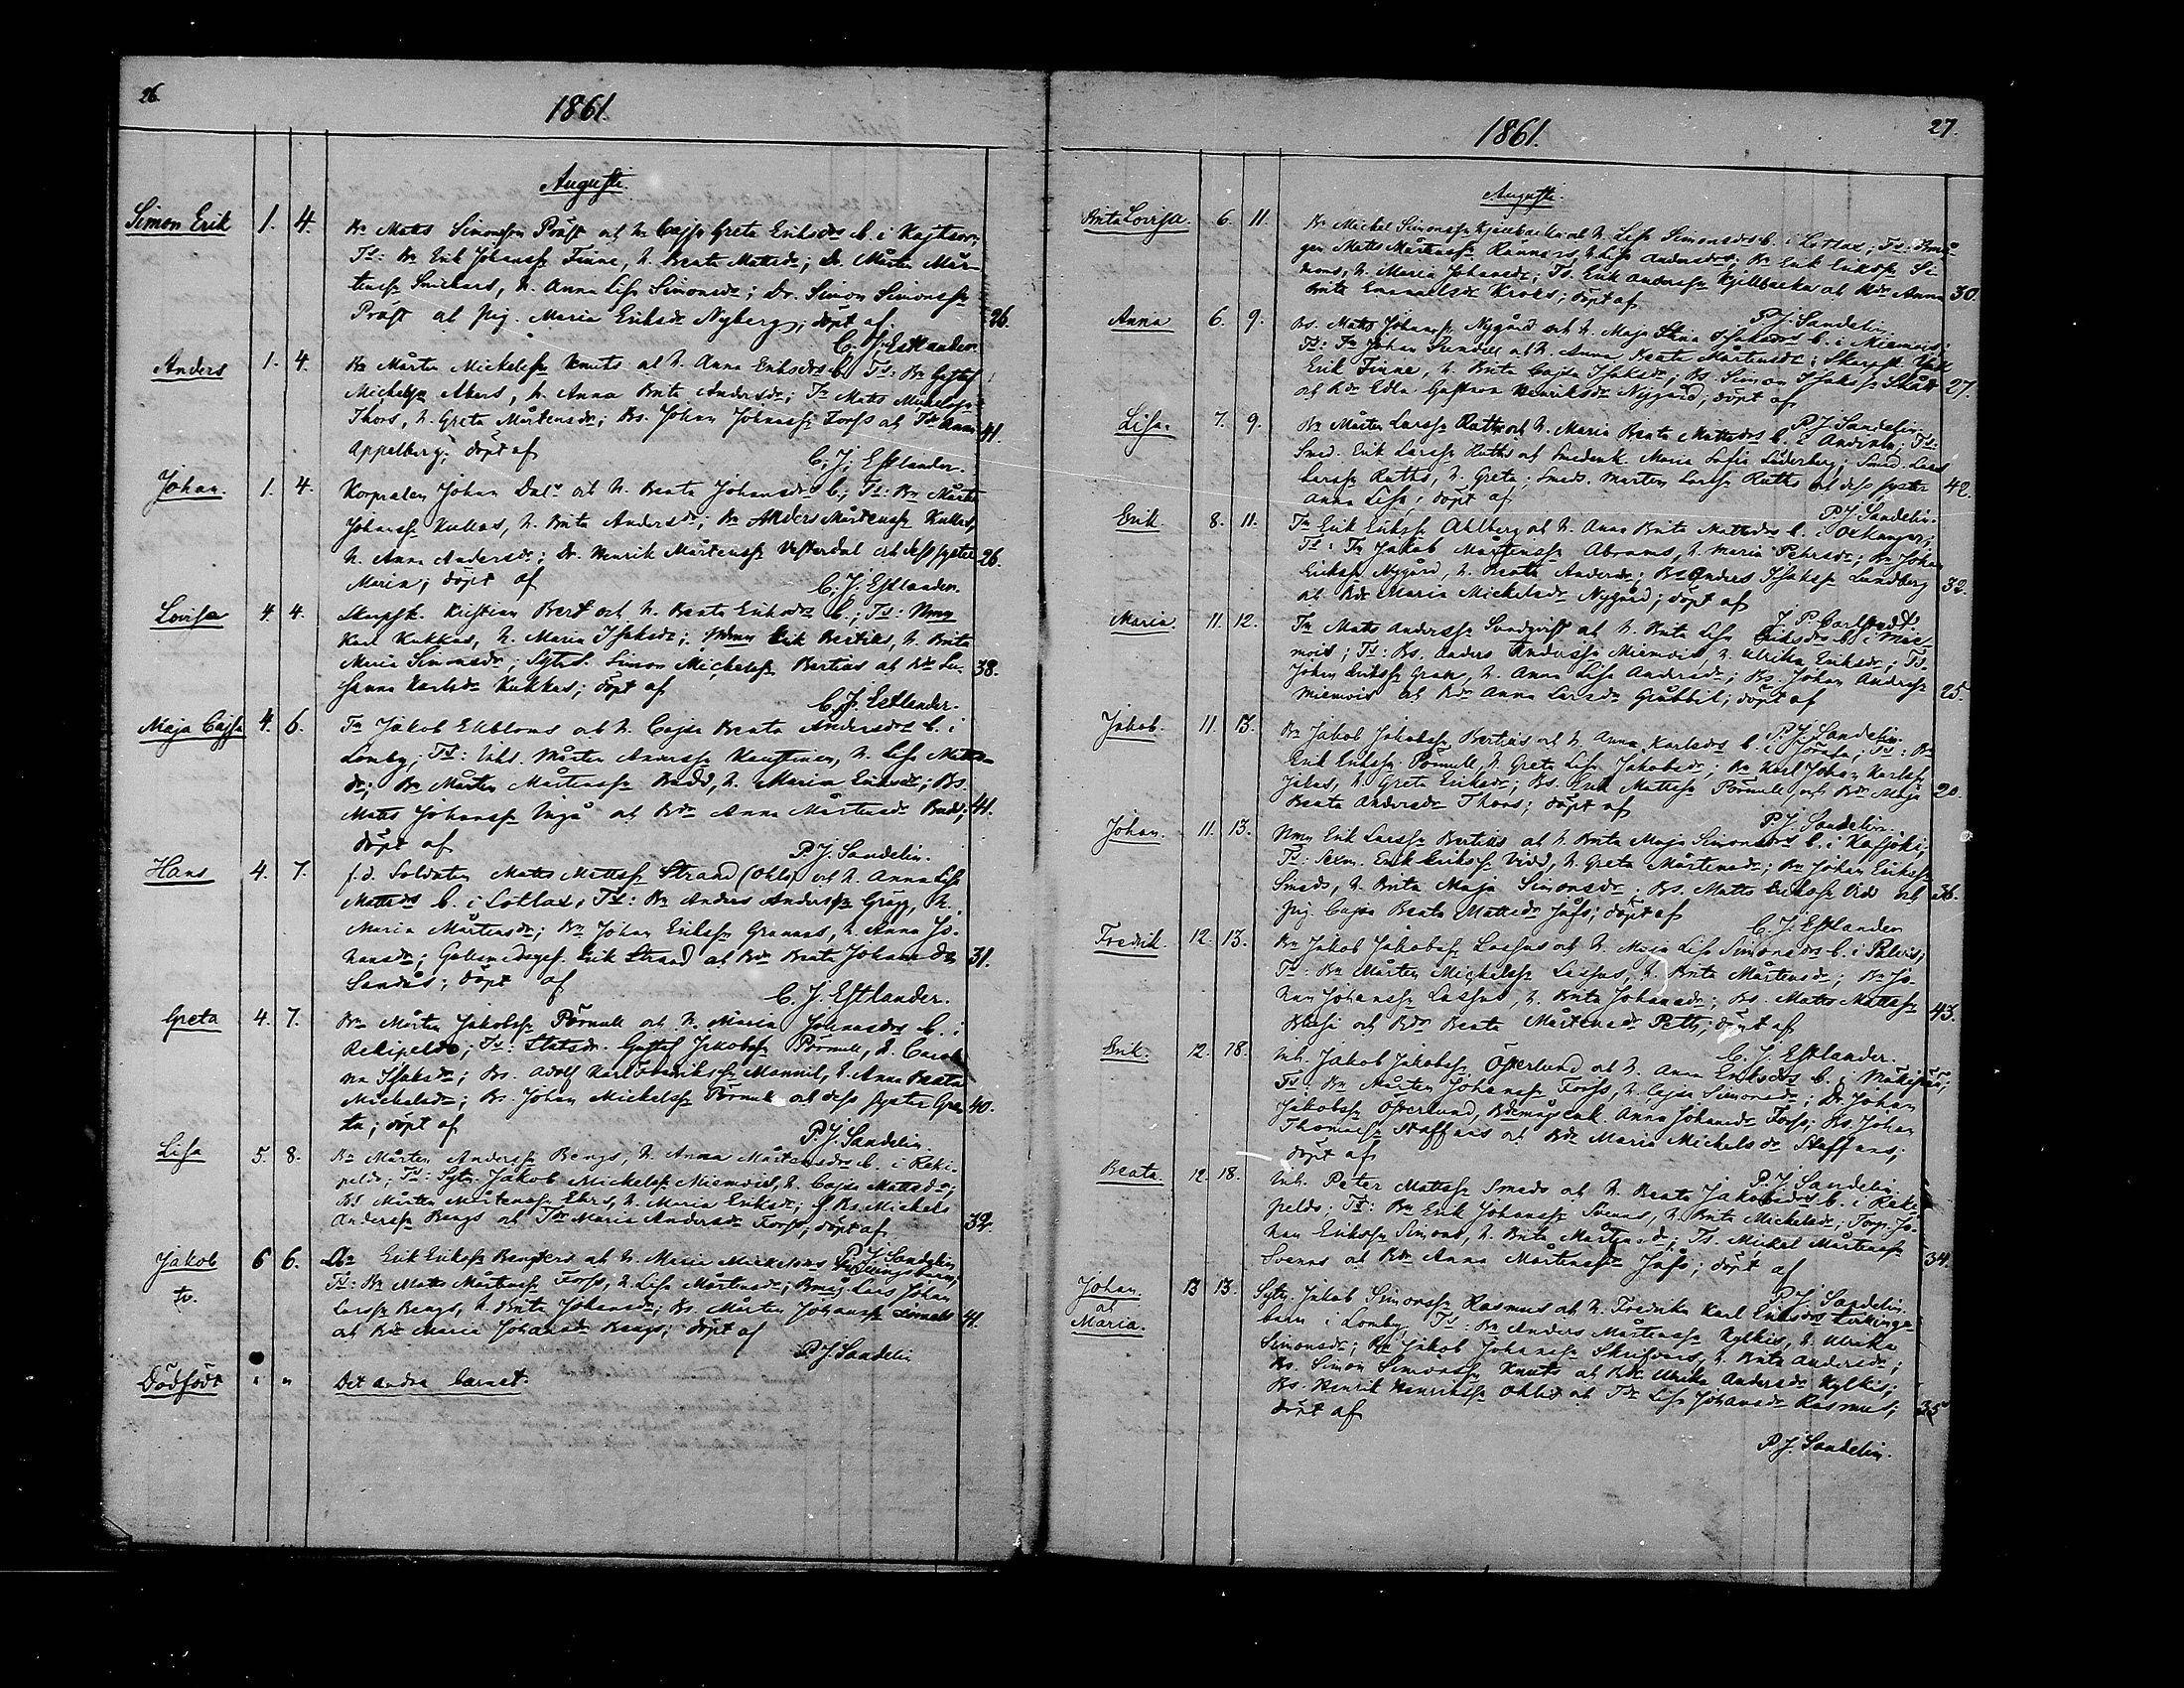 26.
1861.
Augusti.
Simon Erik 1. 4. Bn Matts Simonssn Präst och h. Cajsa Greta Eriksdrs b. i
Ts: Bn Erik Johanss. Finne, h. Beata Mattsdr; Dr. Mårten Mår-
tenss. Snickars, h. Anna Lisa Simonsdr; Dr. Simon Simonss.
Präst och Pig. Maria Eriksdr Nyberg; döpt af 26.
C. J. Estlander.
Anders 1. 4. Bn Mårten Michelss. Knuts och h. Anna Eriksdrs b. Ts: Bn Gustaf
Michelss. Abers, h. Anna Brita Andersdr; Tn Matts Michelss.
Thors, h. Greta Mårtensdr; Bs. Johan Johanss. Forss och Td Anna 41.
Appelberg; döpt af
C. J. Estlander.
Johan. 1. 4. Korpralen Johan Dal och h. Beata Johansdrs b.; Ts: Bn Mårten
Johanss. Kullas, h. Brita Andersdr; Bn Anders Mårtenss. Kullas,
h. Anna Andersdr; Dr. Henrik Mårtenss. Vesterdal och dess syster 26.
Maria; döpt af
C. J. Estlander.
Lovisa 4. 4. Skarpsk. Kristian Bert och h. Beata Eriksdrs b.; Ts: Nmn
Karl Kukkus, h. Maria Isaksdr; Nmn Erik Bertils, h. Brita
Maria Simonsdr; Sytn. Simon Michelss. Bertils och Bdr Su- 38.
sanna Karlsdr Kukkus; döpt af
C. J. Estlander.
Maja Cajsa 4. 6. Tn Jakob Ekbloms och h. Cajsa Beata Andersdrs b. i
Lomby; Ts: Inhs. Mårten Anderss. h. Lisa Matts-
dr; Bn Mårten Mårtenss. Budd, h. Maria Eriksdr; Bs.
Matts Johanss. Ingå och Bdr Anna Mårtensdr Budd; 41.
döpt af
P. J. Sandelin.
Hans 4. 7. f.d. Soldaten Matts Mattss. Strand (Ohls) och h. Anna Lisa
Mattsdrs b. i Lotlax; Ts: Bn Anders Anderss. Grägg, h.
Maria Mårtensdr; Bn Johan Erikss. Grannas, h. Anna Jo-
hansdr; Erik Strand och Bdr Beata Johansdr 31.
Sandås; döpt af
C. J. Estlander.
Greta 4. 7. Bn Mårten Jakobss. Pörnull och h. Maria Johansdrs b. i
Rekipeldo; Ts: Statsdr. Gustaf Jakobss. Pörnull, h. Caroli-
na Isaksdr; Bs. Adolf Karl Fredrikss. Mannil, h. Anna Beata
Michelsdr; Bs. Johan Michelss. Pörnull och dess syster Gre- 40.
ta; döpt af
P. J. Sandelin.
Lisa 5. 8. Bn Mårten Anderss. Bengs, h. Anna Mårtensdrs b. i Reki-
peldo; Ts: Sytn. Jakob Michelss. Miemois, h. Cajsa Mattsdr;
Bs Mårten Mårtenss. Ehrs, h. Maria Eriksdr; Bs. Michel
Anderss. Bengs och Tdr Maria Andersdr Forss; döpt af 32.
P. J. Sandelin
Jakob tv. 6 6. Erik Erikss. och h. Maria Michelsdrs tvillingsbarn;
Ts: Bn Matts Mårtenss. Forss, h. Lisa Mårtensdr; Bmåg Lars Johan
Larss. Bengs, h. Brita Johansdr; Bs. Mårten Johanss. 41.
och Bdr Maria Johansdr Bengs; döpt af
P. J. Sandelin
Dödfödt " " Det andra barnet.
27.
1861.
Augusti.
Brita Lovisa. 6. 11. Bn Michel Simonss. Kjellbacka och h. Lisa Simonsdrs b. i Lotlax; Ts: Bmå-
gen Matts Mårtenss. Rännars, h. Lisa Andersdr; Bn Erik Erikss. Si-
mons, h. Maria Johansdr; Ts. Erik Anderss. Kjellbacka och Bdr Anna 30.
Brita Emanuelsdr Kroks; döpt af
P. J. Sandelin.
Anna 6. 9. Bs. Matts Johanss. Nygård och h. Maja Stina Isaksdrs b. i Miemois;
Ts: Tn Johan Sundell och h. Anna Beata Mårtensdr; Skarpsk.
Erik Finne, h. Brita Cajsa Isaksdr; Bs. Simon Isakss. Skått 27.
och Bdr Edla Gustava Henriksdr Nygård; döpt af
P. J. Sandelin.
Lisa. 7. 9. Bn Mårten Larss. Ruths och h. Maria Beata Mattsdrs b. i Andiala; Ts:
Smed. Erik Larss. Ruths och Smedenk. Maria Sofia Söderberg; Smed. Lars
Larss. Ruths, h. Greta; Smeds. Mårten Larss. Ruths och dess syster 42.
Anna Lisa; döpt af
P. J. Sandelin.
Erik. 8. 11. Tn Erik Erikss. Ahlberg och h. Anna Brita Mattsdrs b. i Oxkangar;
Ts: Tn Jakob Mårtenss. Abrams, h. Maria Petersdr; Bn Johan
Erikss. Nygård, h. Beata Andersdr; Bs Anders Isakss. Lundberg 32.
och Bdr Maria Michelsdr Nygård; döpt af
J. P. Carlstedt.
Maria. 11. 12. Tn Matts Anderss. Sundqvist och h. Brita Lisa Eriksdrs b. i Mie-
mois; Ts: Bs. Anders Anderss. Miemois, h. Ulrika Eriksdr; Ts.
Johan Erikss. Gran, h. Anna Lisa Andersdr; Bs. Johan Anderss. 25.
Miemois och Bdr Anna Larsdr Gråbbil; döpt af
P. J. Sandelin.
Jakob. 11. 13. Bn Jakob Jakobss. Bertils och h. Anna Karlsdrs b. i Jörala; Ts: Bn
Erik Erikss. Pörnull, h. Greta Lisa Jakobsdr; Bn Karl Johan Karlss.
h. Greta Eriksdr; Bs. Erik Mattss. Pörnull och Bdr Maja 20.
Beata Andersdr Thors; döpt af
P. J. Sandelin.
Johan. 11. 13. Nmn Erik Larss. Bertils och h. Brita Maja Simonsdrs b. i Kafjoki;
Ts: Sexm. Erik Erikss. Vidd, h. Greta Mårtensdr; Bn Johan Erikss.
Smeds, h. Brita Maja Simonsdr; Bs. Matts Erikss. Vidd och 36.
Pig. Cajsa Beata Mattsdr Jåfs; döpt af
C. J. Estlander
Fredrik. 12. 13. Bn Jakob Jakobss. Lassus och h. Maja Lisa Simonsdrs b. i Palvis;
Ts: Bn Mårten Michelss. Lassus, h. Brita Mårtensdr; Bn Jo-
han Johanss. Lassus, h. Brita Johansdr; Bs. Matts Mattss. 43.
Klasi och Bdr Beata Mårtensdr Pelts; döpt af
C. J. Estlander.
Erik. 12. 18. Inh. Jakob Jakobss. Österlund och h. Anna Eriksdrs b. i Mäkipää;
Ts: Bn Mårten Johanss. Forss, h. Cajsa Simonsdr; Dr. Johan
Jakobss. Österlund, Bdmågenk. Anna Johansdr Forss; Bs. Johan
Thomass. Staffans och Bdr Maria Michelsdr Staffans;
döpt af
P. J. Sandelin
Beata. 12. 18. Inh. Peter Mattss. Smeds och h. Beata Jakobsdrs b. i Reki-
peldo; Ts: Bn Erik Johanss. Svenns, h. Brita Michelsdr; Torp. Jo-
han Erikss. Simons, h. Brita Mårtensdr; Ts. Michel Mårtenss.
Svenns och Bdr Anna Mårtensdr Jåfs; döpt af 34.
P. J. Sandelin.
Johan. och Maria. 13 13. Sytn. Jakob Simonss. Rasmus och h. Fredrika Karl Eriksdrs tvillinga-
barn i Lomby; Ts: Bn Anders Mårtenss. Kylkis, h. Ulrika
Simonsdr; Bn Jakob Johanss. Skrifvars, h. Brita Andersdr;
Bs. Simon Simonss. Knuts och Bdr Ulrika Andersdr Kylkis;
Bs. Henrik Henrikss. Ohlis och Tdr Lisa Johansdr Rasmus; 35
döpt af
P. J. Sandelin.